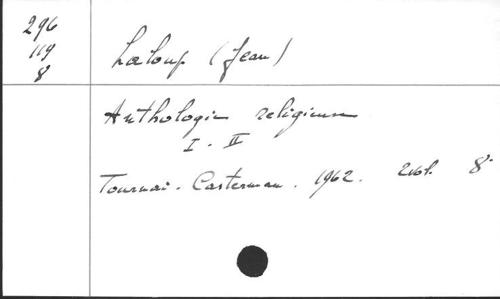 296
119
8
Laloup (Jean)
Anthologie religieuse
I - II
Tournai. Casterman. 1962. 2 vol. 8°